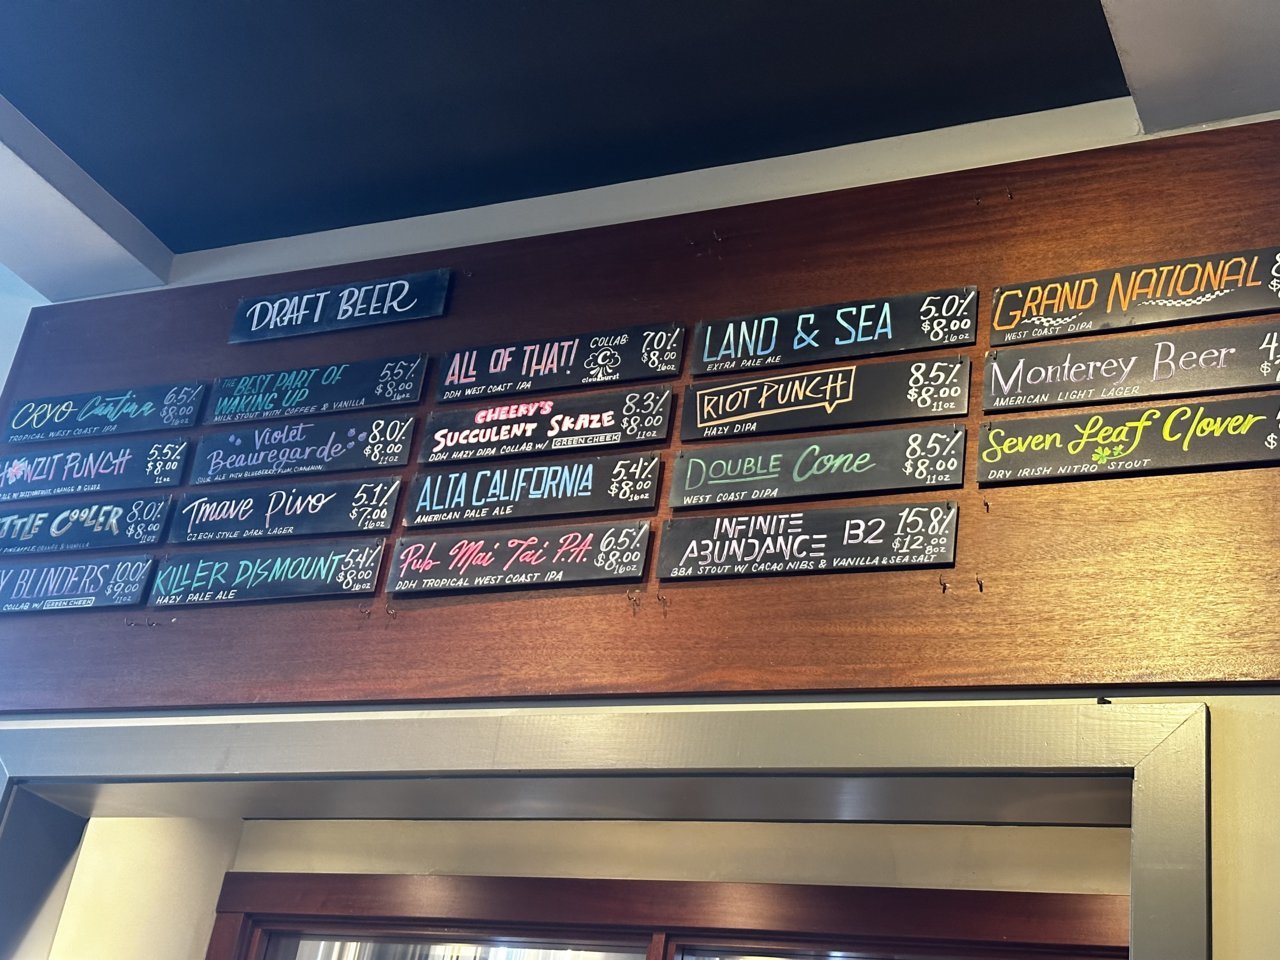 DRAFT BEER
CRYO Cantina 6.5%
$8.00
16oz
TROPICAL WEST COAST IPA
PUNCH 5.5%
$8.00
11oz
COOLER 8.0%
$8.00
11oz
PINEAPPLE, ORANGE & VANILLA
BLINDERS 10.0%
$9.00
11oz
COLLAB W/ GREEN CHEEK
THE BEST PART OF
WAKING UP
5.5%
$8.00
16oz
MILK STOUT WITH COFFEE & VANILLA
Violet
Beauregarde
8.0%
$8.00
11oz
SOUR ALE WITH BLUEBERRY, PLUM, CINNAMON
Tmave Pivo 5.1%
$7.00
16oz
CZECH STYLE DARK LAGER
KILLER DISMOUNT 5.4%
$8.00
16oz
HAZY PALE ALE
ALL OF THAT! COLLAB 7.0%
cloudburst $8.00
16oz
DDH WEST COAST IPA
CHEEKY'S
SUCCULENT SKAZE 8.3%
$8.00
11oz
DDH HAZY DIPA COLLAB W/ GREEN CHEEK
ALTA CALIFORNIA 5.4%
$8.00
16oz
AMERICAN PALE ALE
Pub Mai Tai P.A. 6.5%
$8.00
16oz
DDH TROPICAL WEST COAST IPA
LAND & SEA 5.0%
$8.00
16oz
EXTRA PALE ALE
RIOT PUNCH 8.5%
$8.00
11oz
HAZY DIPA
DOUBLE Cone 8.5%
$8.00
11oz
WEST COAST DIPA
INFINITE
ABUNDANCE B2 15.8%
$12.00
8oz
BBA STOUT W/ CACAO NIBS & VANILLA & SEA SALT
GRAND NATIONAL
WEST COAST DIPA
Monterey Beer
AMERICAN LIGHT LAGER
Seven Leaf Clover
DRY IRISH NITRO STOUT